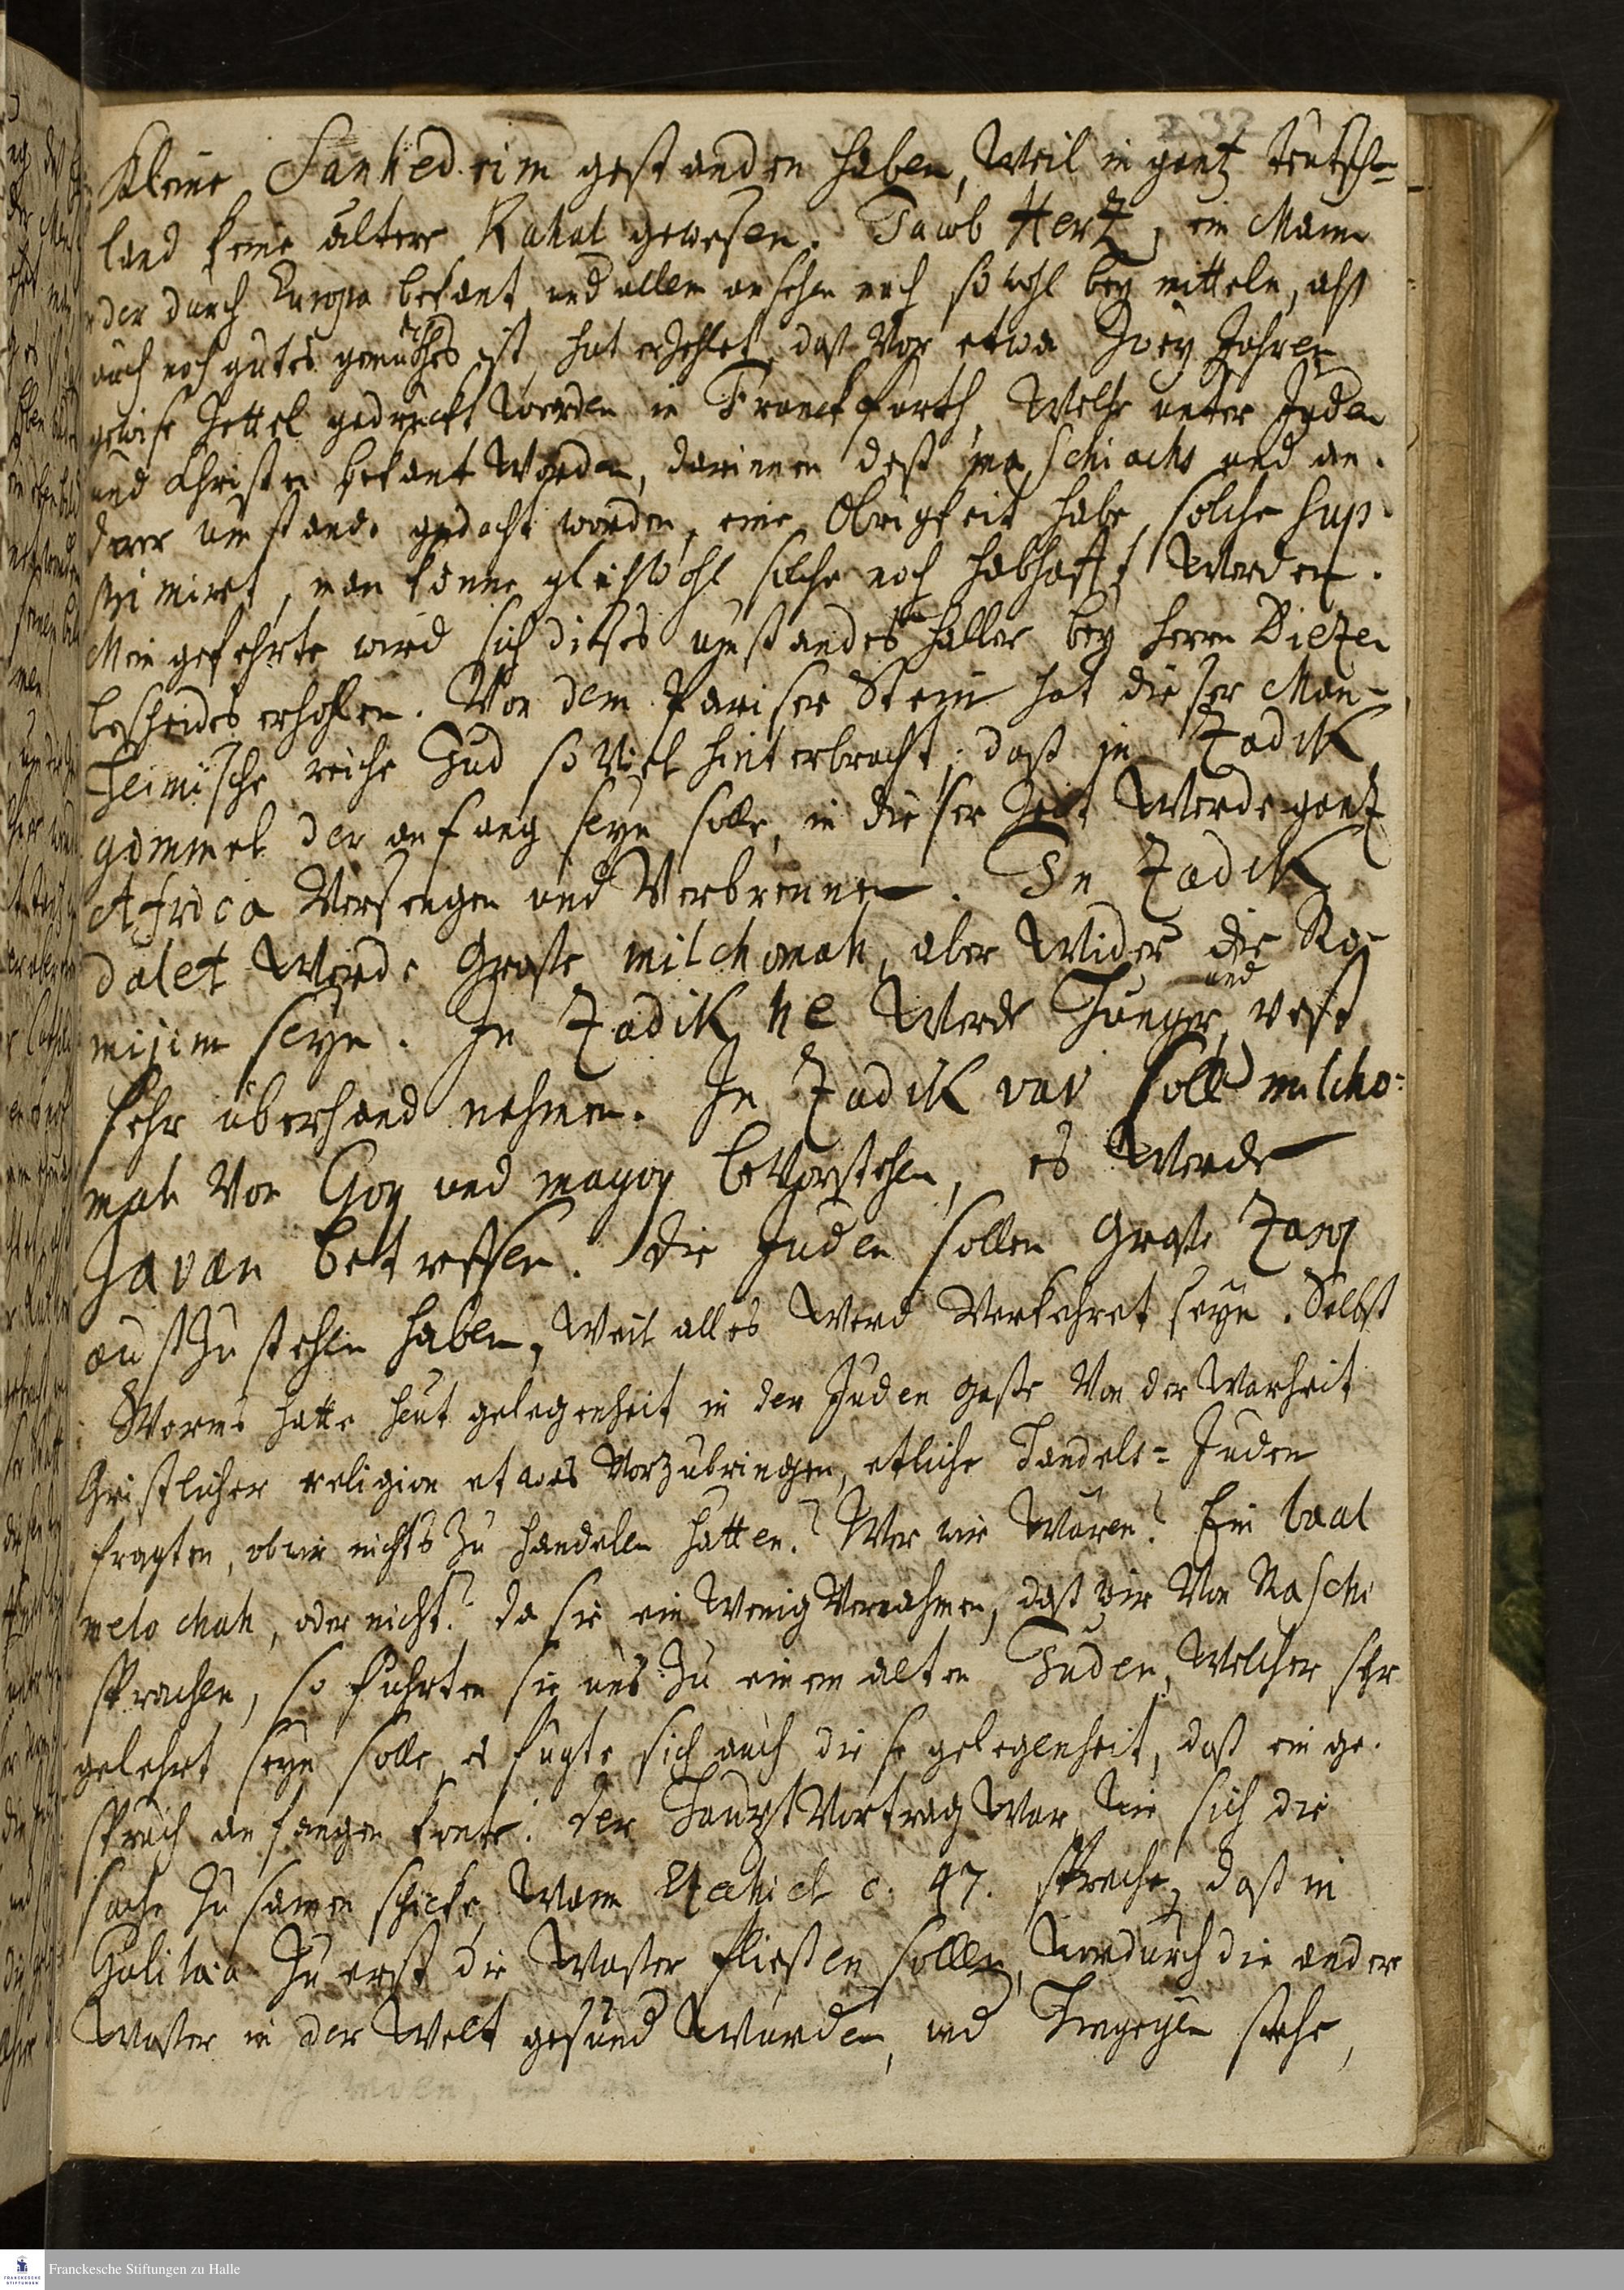 232
kleine Sanhedrim gestanden haben, weil in gantz Teutsch=
land keine ältere Kahal gewesen. Jacob Hertz, ein Mann
der durch Europa bekant, und allem ansehen nach sowohl bey mitteln, alß
auch noch gutes gemüthes ist, hat erzehlet, daß vor etwa zwey Jahren
gewise Zettel gedruckt worden in Franckfurth, welche unter Juden
und Christen bekant worden, darinnen deß maschiachs und an.
derer umstande gedacht worden, eine Obrigkeit habe solche sup.
primiret, man könne gleichwohl solche noch habhafft werden.
Mein gefehrte wird sich dieses umstandes halber bey Herrn Diezen
bescheides erhohlen. Von dem Pariser Stein hat dieser Man=
heimische reiche Jud so viel hinterbracht, daß in Zadik
gimmel der anfang seyn solle, in dieser Zeit werde gantz
Africa versengen und verbrennen. In Zadik
dalet werde große milchomah, aber wider die Ro=
mijim seyn. In Zadik he werde Hunger und pest
sehr überhand nehmen. In Zadik vav soll milcho=
mah von Gog und magog bevorstehen, es werde
Javan betreffen. Die Juden sollen große Zaar
außzustehen haben, weil alles werd verkehret seyn. Selbst
Worms hatte heut gelegenheit in der Juden gaße von der Warheit
Christlicher religion etwas vorzubringen, etliche Handels=Juden
fragten, ob wir nichts zu handeln hätten? Wer wir wären? Ein baal
melochah, oder nicht? da sie ein wenig vernahmen, daß wir von Raschi
sprachen, so führten sie uns zu einem alten Juden, welcher sehr
gelehrt seyn solle, es fügte sich auch diese gelegenheit, daß ein ge.
spräch anfangen konte. Der Hauptvortrag war, wie sich die
sache zusamen schicke, wann Ezechiel c. 47. spreche, daß in
Galilaea zu erst die Waßer fließen sollen, wordurch die andere
Waßer in der Welt gesund würden, und hingegen stehe,
Franckesche Stiftungen zu Halle